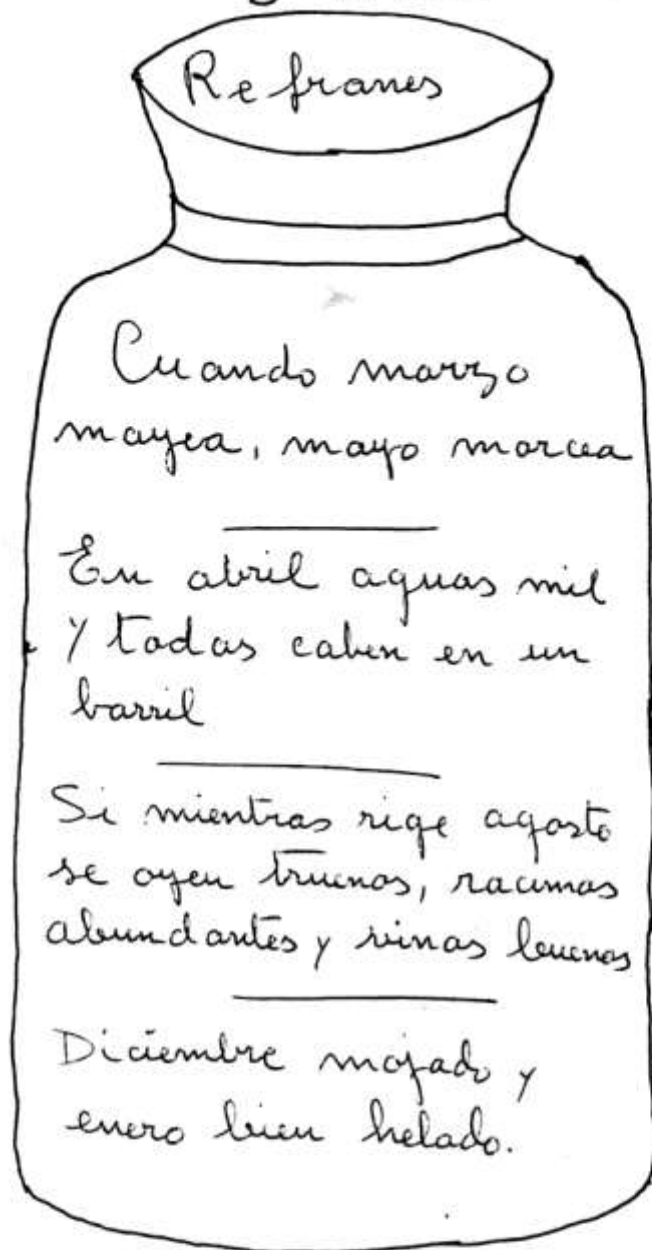 Refranes
Cuando marzo
mayea, mayo marcea
En abril aguas mil
y todas caben en un
barril
Si mientras rige agosto
se oyen truenos, racimos
abundantes y vinos buenos
Diciembre mojado y
enero bien helado.